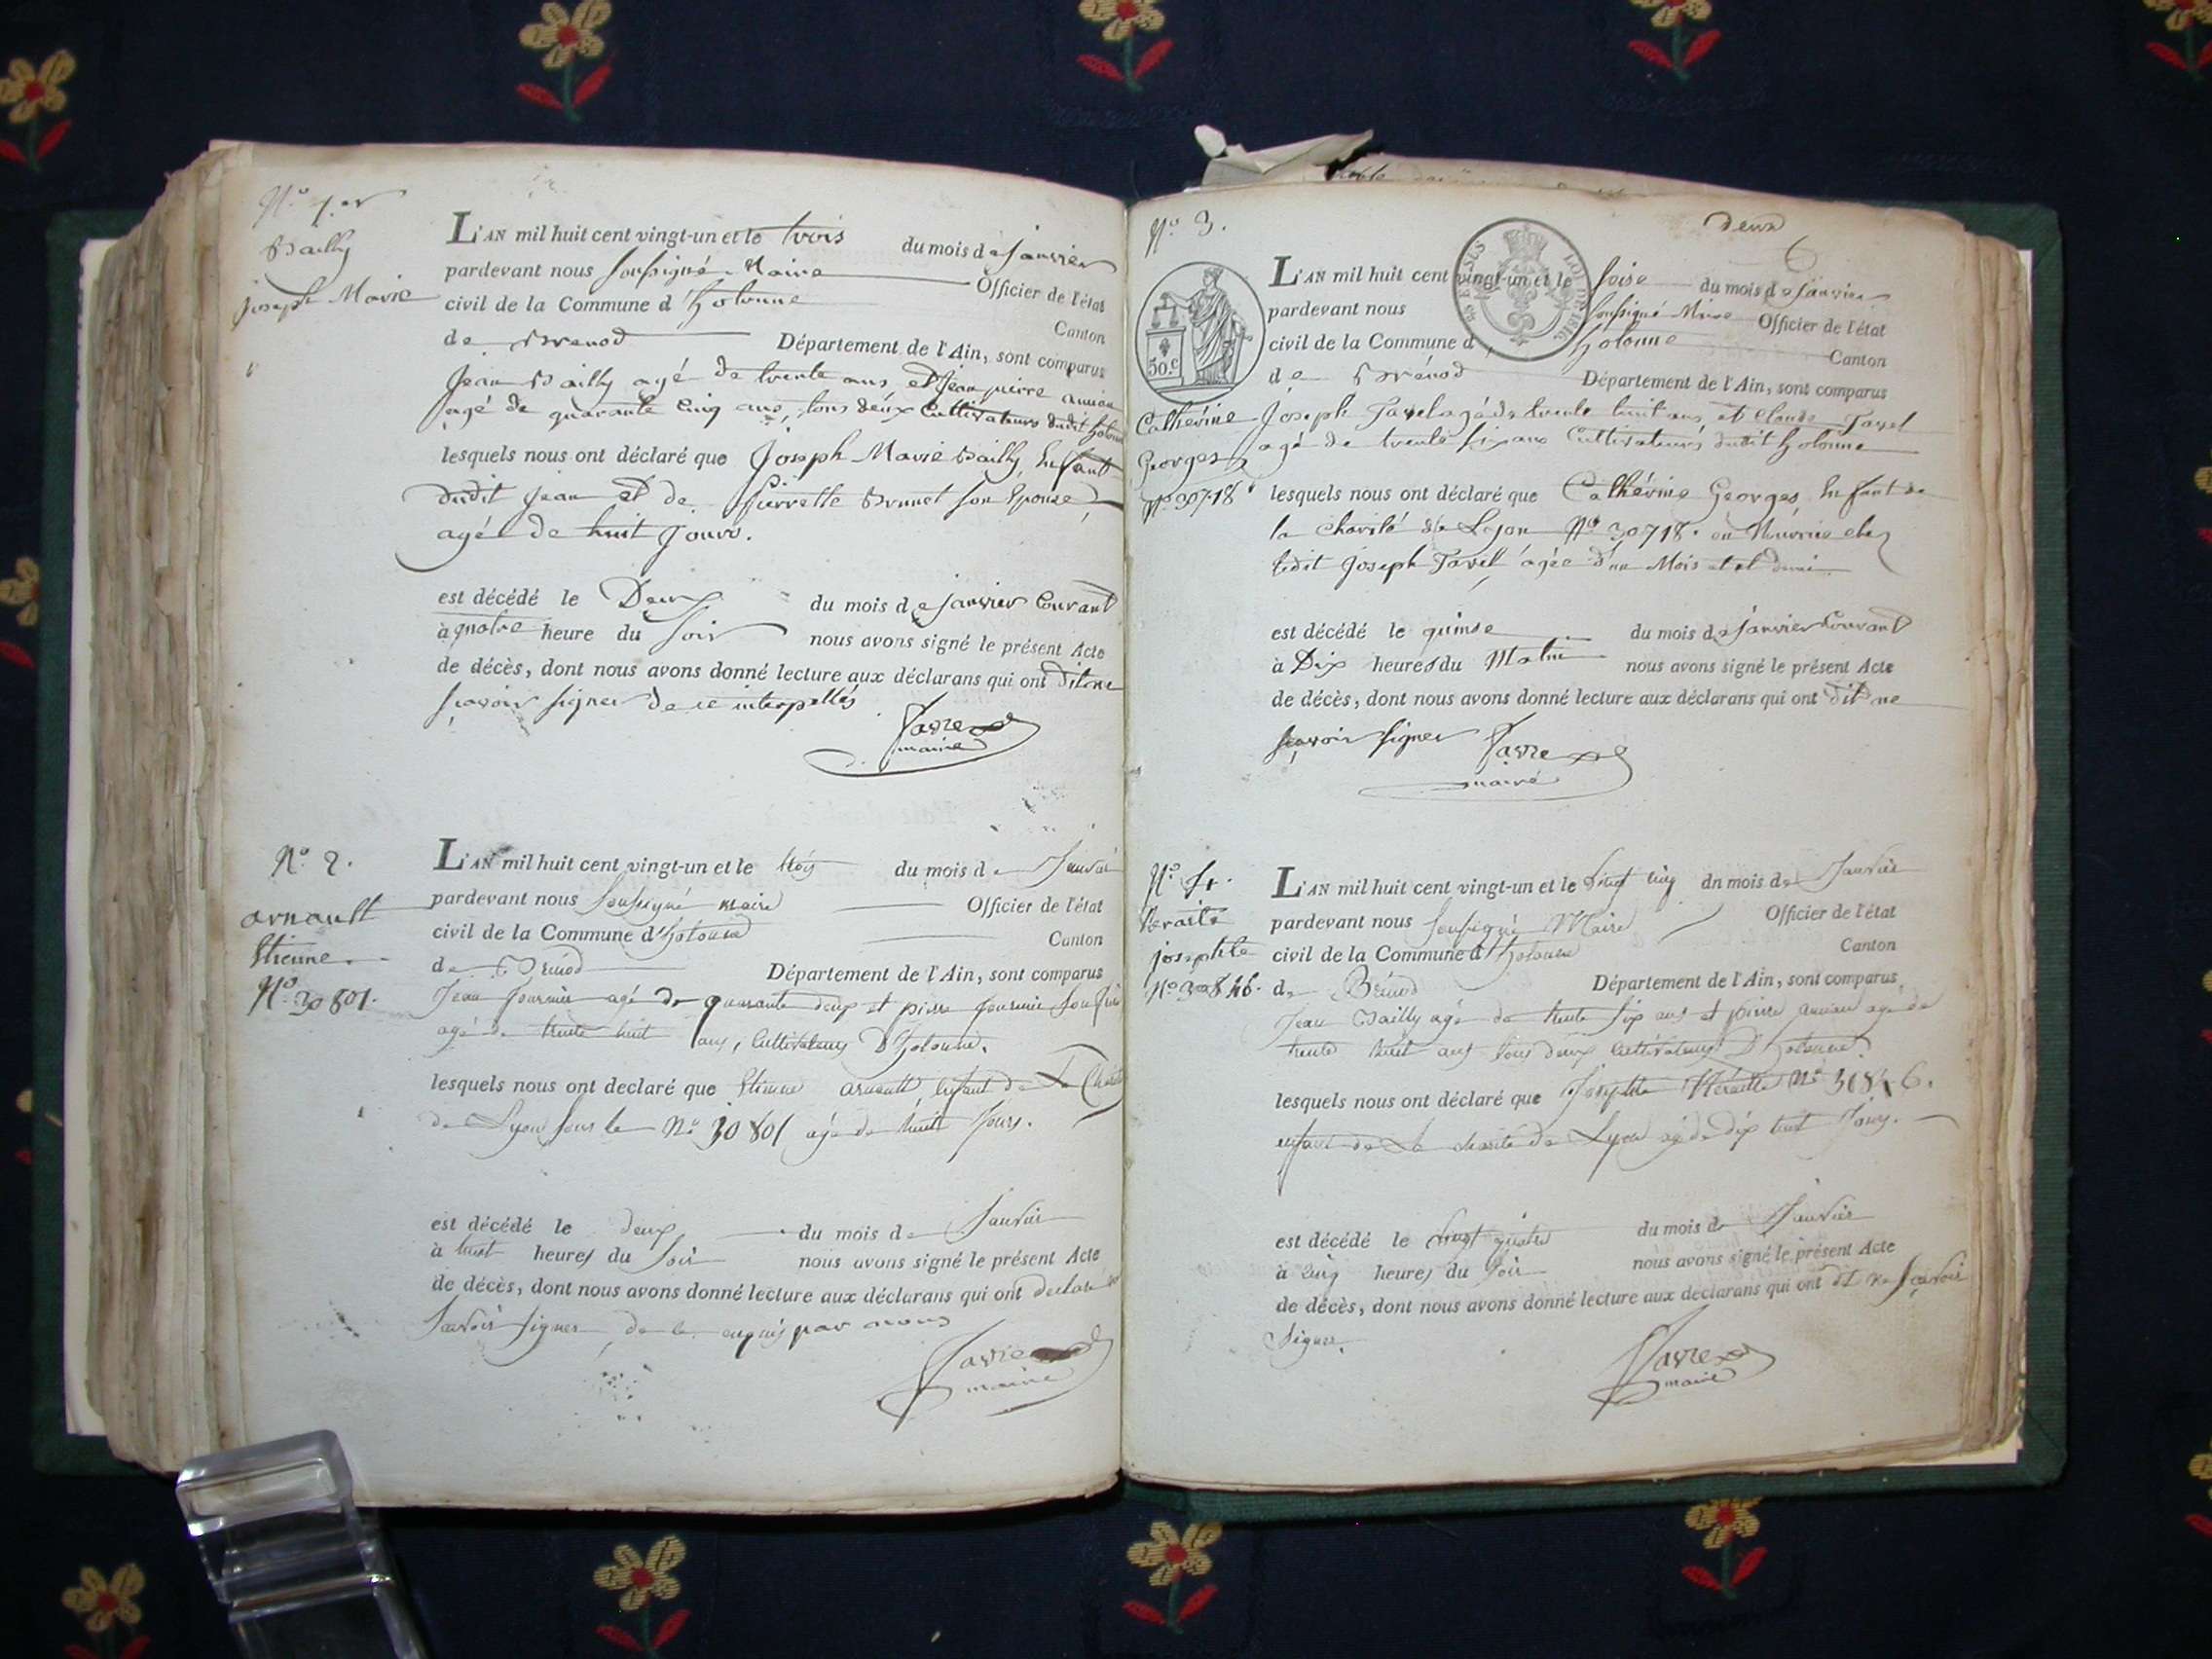 N.o 1.er
Bailly
Joseph Marie
L'AN mil huit cent vingt-un et le trois du mois de Janvier
pardevant nous soussigné Maire Officier de l'état
civil de la Commune d'hotonne Canton
de Brenod Département de l'Ain, sont comparus
Jean Bailly agé de trente ans et Jean pierre
agé de quarante cinq ans, tous deux Cultivateurs dudit hotonne
lesquels nous ont déclaré que Joseph Marie Bailly, Enfant
dudit Jean et de Pierrette Brunet son Epouse,
agé de huit jours.
est décédé le Deux du mois de janvier Courant
à quatre heure du soir nous avons signé le présent Acte
de décès, dont nous avons donné lecture aux déclarans qui ont dit ne
sçavoir signer de ce interpellés
maire
N.o 2.
arnault
Etienne.
N.o 30801.
L'AN mil huit cent vingt-un et le trois du mois de Janvier
pardevant nous soussigné maire Officier de l'état
civil de la Commune d'hotonne Canton
de Brénod Département de l'Ain, sont comparus
Jean fournier agé de quarante deux et pierre fournier son
agé de trente huit ans, Cultivateurs D'hotonne.
lesquels nous ont declaré que Etienne arnault enfant de La Charité
de Lyon sous le N.o 30801 agé de huit Jours.
est décédé le deux du mois de Janvier
à huit heures du Soir nous avons signé le présent Acte
de décès, dont nous avons donné lecture aux déclarans qui ont déclaré ne
savoir signer de ce enquis par nous
maire
deux
N.o 3.
30.c
LOI DE 1816
L'AN mil huit cent vingt-un et le seise du mois de Janvier
pardevant nous soussigné Maire Officier de l'état
civil de la Commune d'hotonne Canton
de Brénod Département de l'Ain, sont comparus
Cathérine
Georges
N.o 30718
Joseph Tavel agé de trente huit ans, et Claude Tavel
agé de trente six ans Cultivateurs dudit hotonne
lesquels nous ont déclaré que Cathérine Georges, Enfant de
la Charité de Lyon N.o 30718. en Nourrice chez
ledit Joseph Tavel agée d'un Mois et demi
est décédé le quinse du mois de Janvier Courant
à Dix heures du Matin nous avons signé le présent Acte
de décès, dont nous avons donné lecture aux déclarans qui ont dit ne
sçavoir signer
maire
N.o 4.
joséphte
N.o 30846.
L'AN mil huit cent vingt-un et le vingt cinq du mois de Janvier
pardevant nous soussigné Maire Officier de l'état
civil de la Commune d'hotonne Canton
de Brénod Département de l'Ain, sont comparus
Jean Bailly agé de trente six ans et pierre agé de
trente huit ans tous deux Cultivateurs D'hotonne.
lesquels nous ont déclaré que Josephte N.o 30846.
enfant de La charité de Lyon agé de dix huit Jours.
est décédé le vingt quatre du mois de Janvier
à cinq heures du Soir nous avons signé le présent Acte
de décès, dont nous avons donné lecture aux déclarans qui ont dit ne sçavoir
signer.
maire